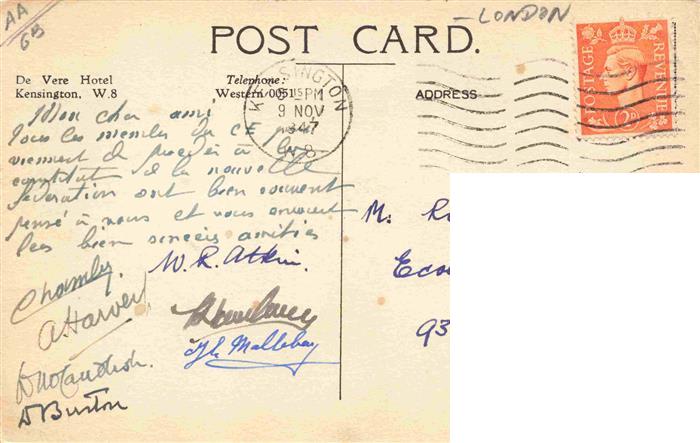 AA
GB
- LONDON
POST CARD.
De Vere Hotel
Kensington, W.8
Telephone:
Western 0051
KENSINGTON
15 PM
9 NOV
1947
W.8
ADDRESS
POSTAGE
REVENUE
2D
Mon cher ami
Tous les membres du C E
viennent de procéder à la
de la nouvelle
fédération ont bien souvent
pensé à vous et vous envoient
les bien sincères amitiés
W. R. Atkin.
A Harvey
D Burton
M.
Eco
93